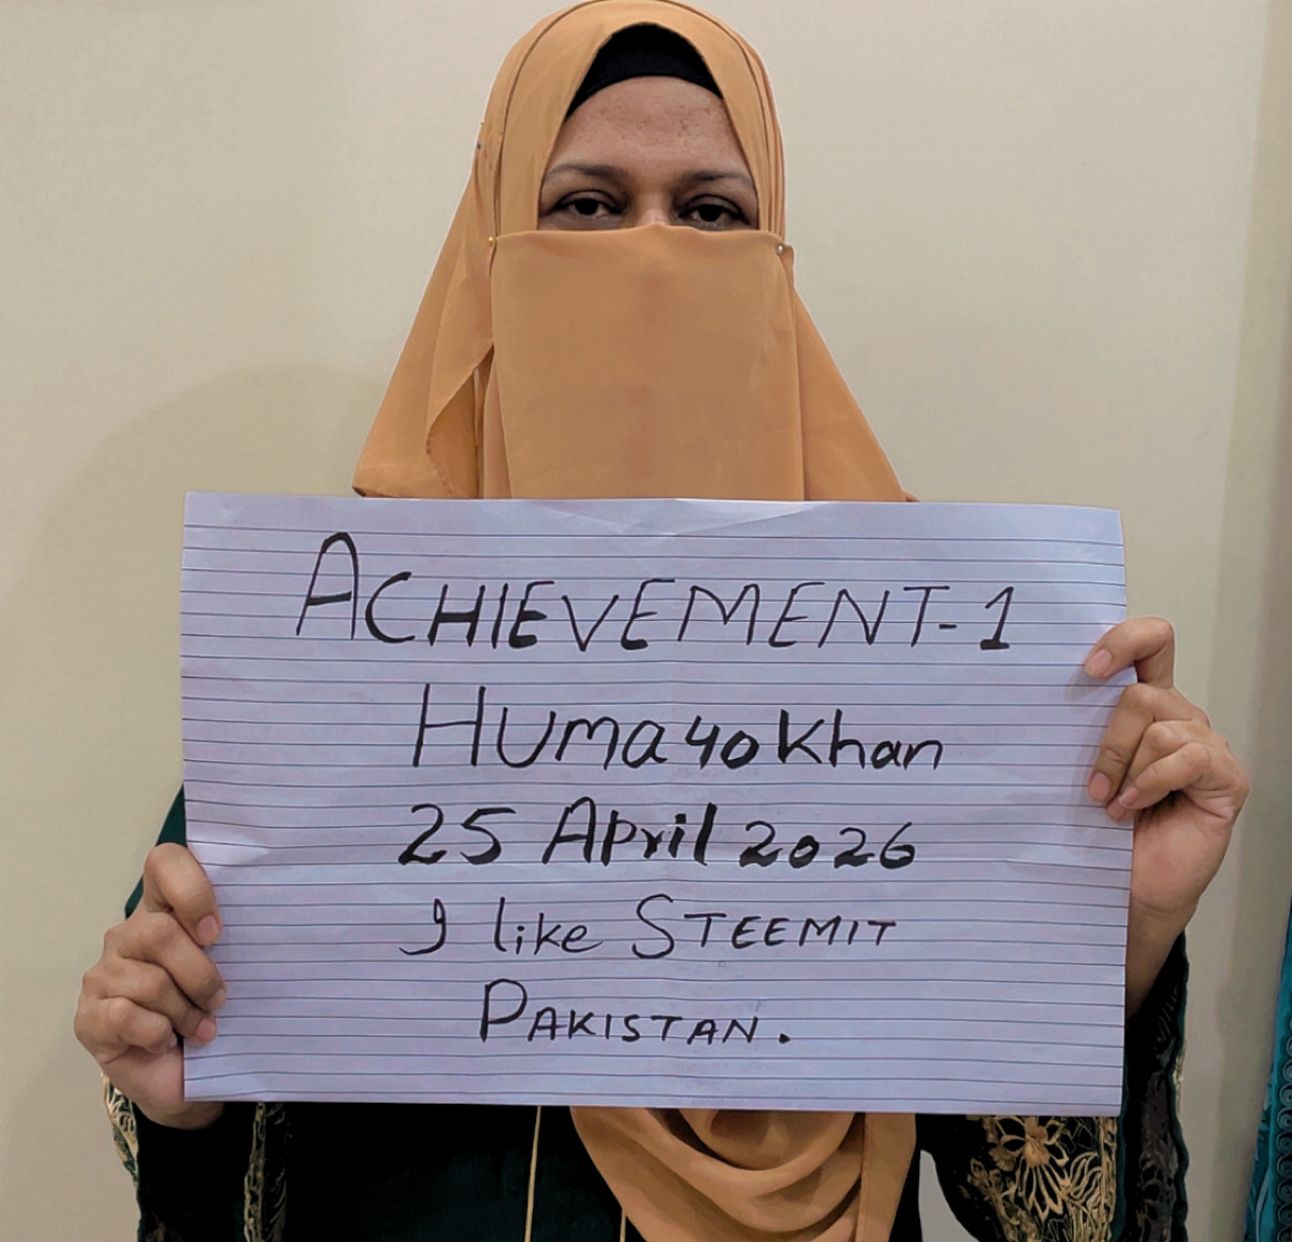 ACHIEVEMENT-1
Huma40Khan
25 April 2026
I like STEEMIT
PAKISTAN.